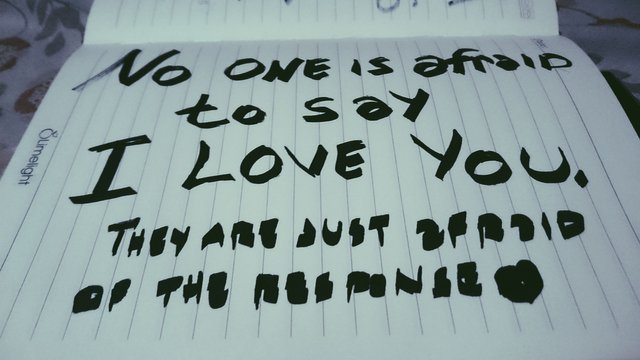 No one is afraid
to say
I LOVE YOU.
THEY ARE JUST AFRAID
OF THE RESPONSE
Ourhelight